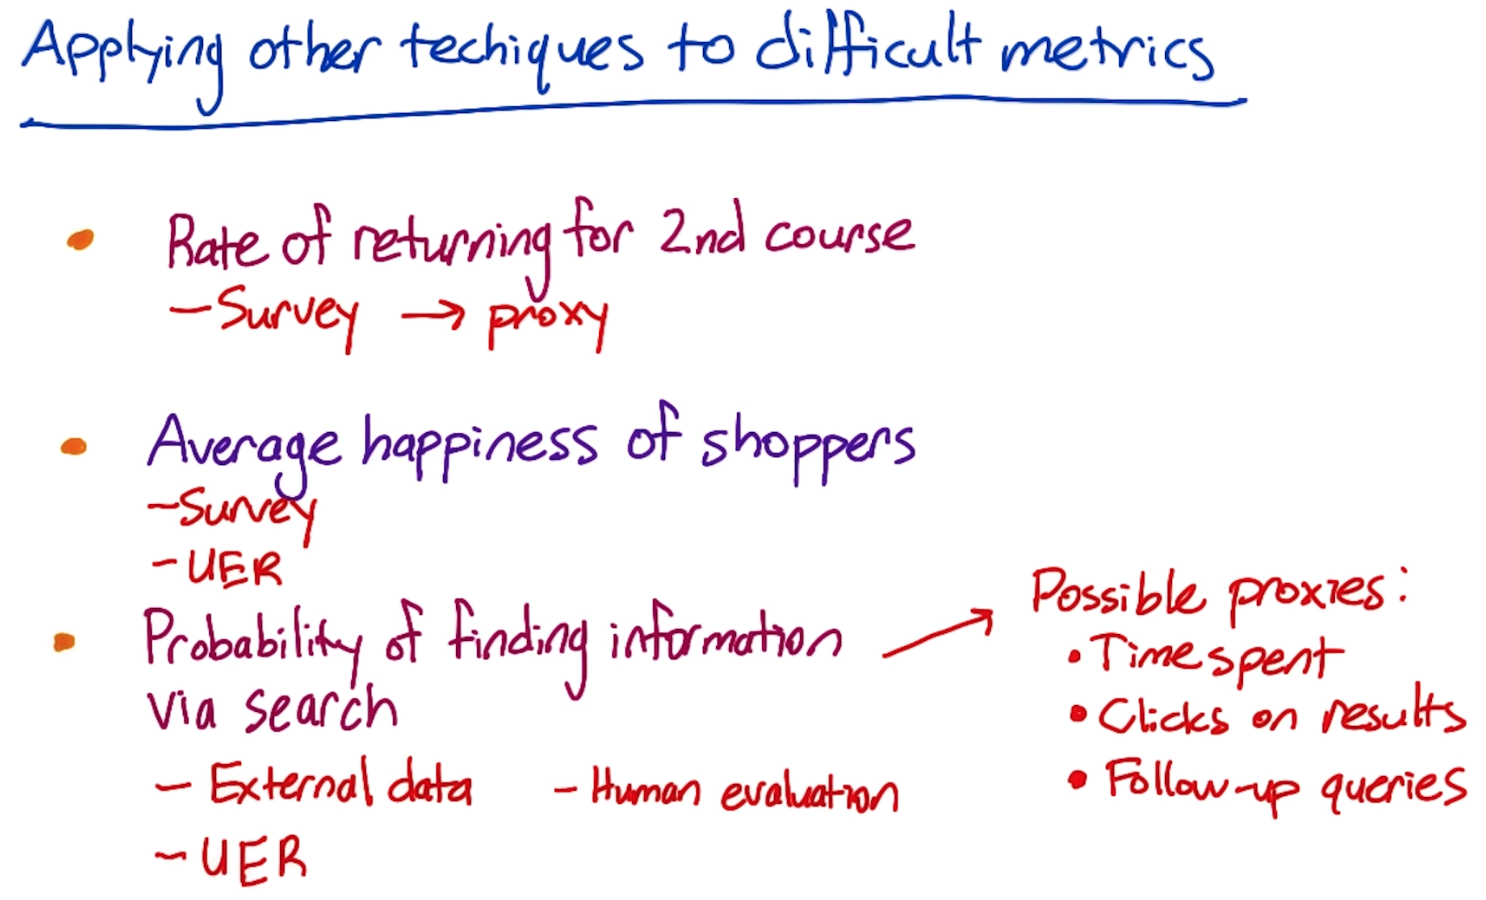 Applying other techiques to difficult metrics
• Rate of returning for 2nd course
– Survey → proxy
• Average happiness of shoppers
– Survey
– UER
• Probability of finding information
via search
– External data – Human evaluation
– UER
→ Possible proxies:
• Time spent
• Clicks on results
• Follow-up queries